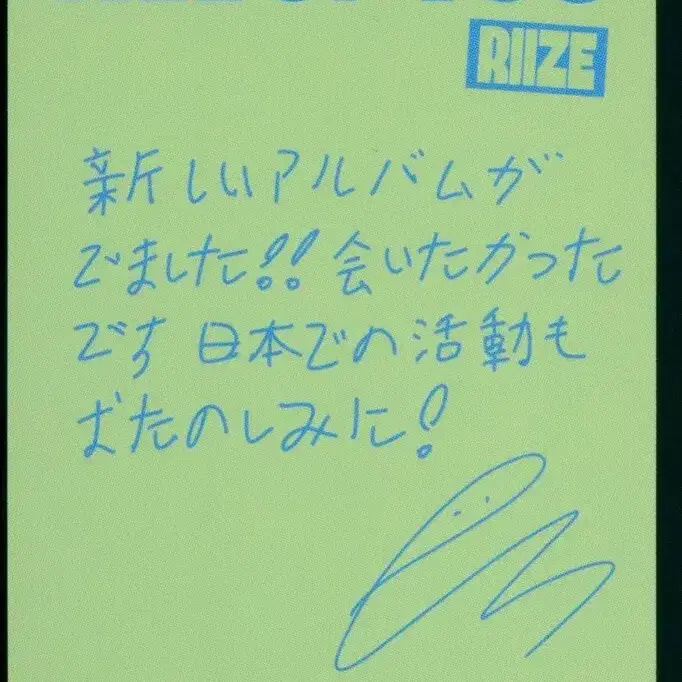 RIIZE
新しいアルバムが
でました!! 会いたかった
です 日本での活動も
おたのしみに!